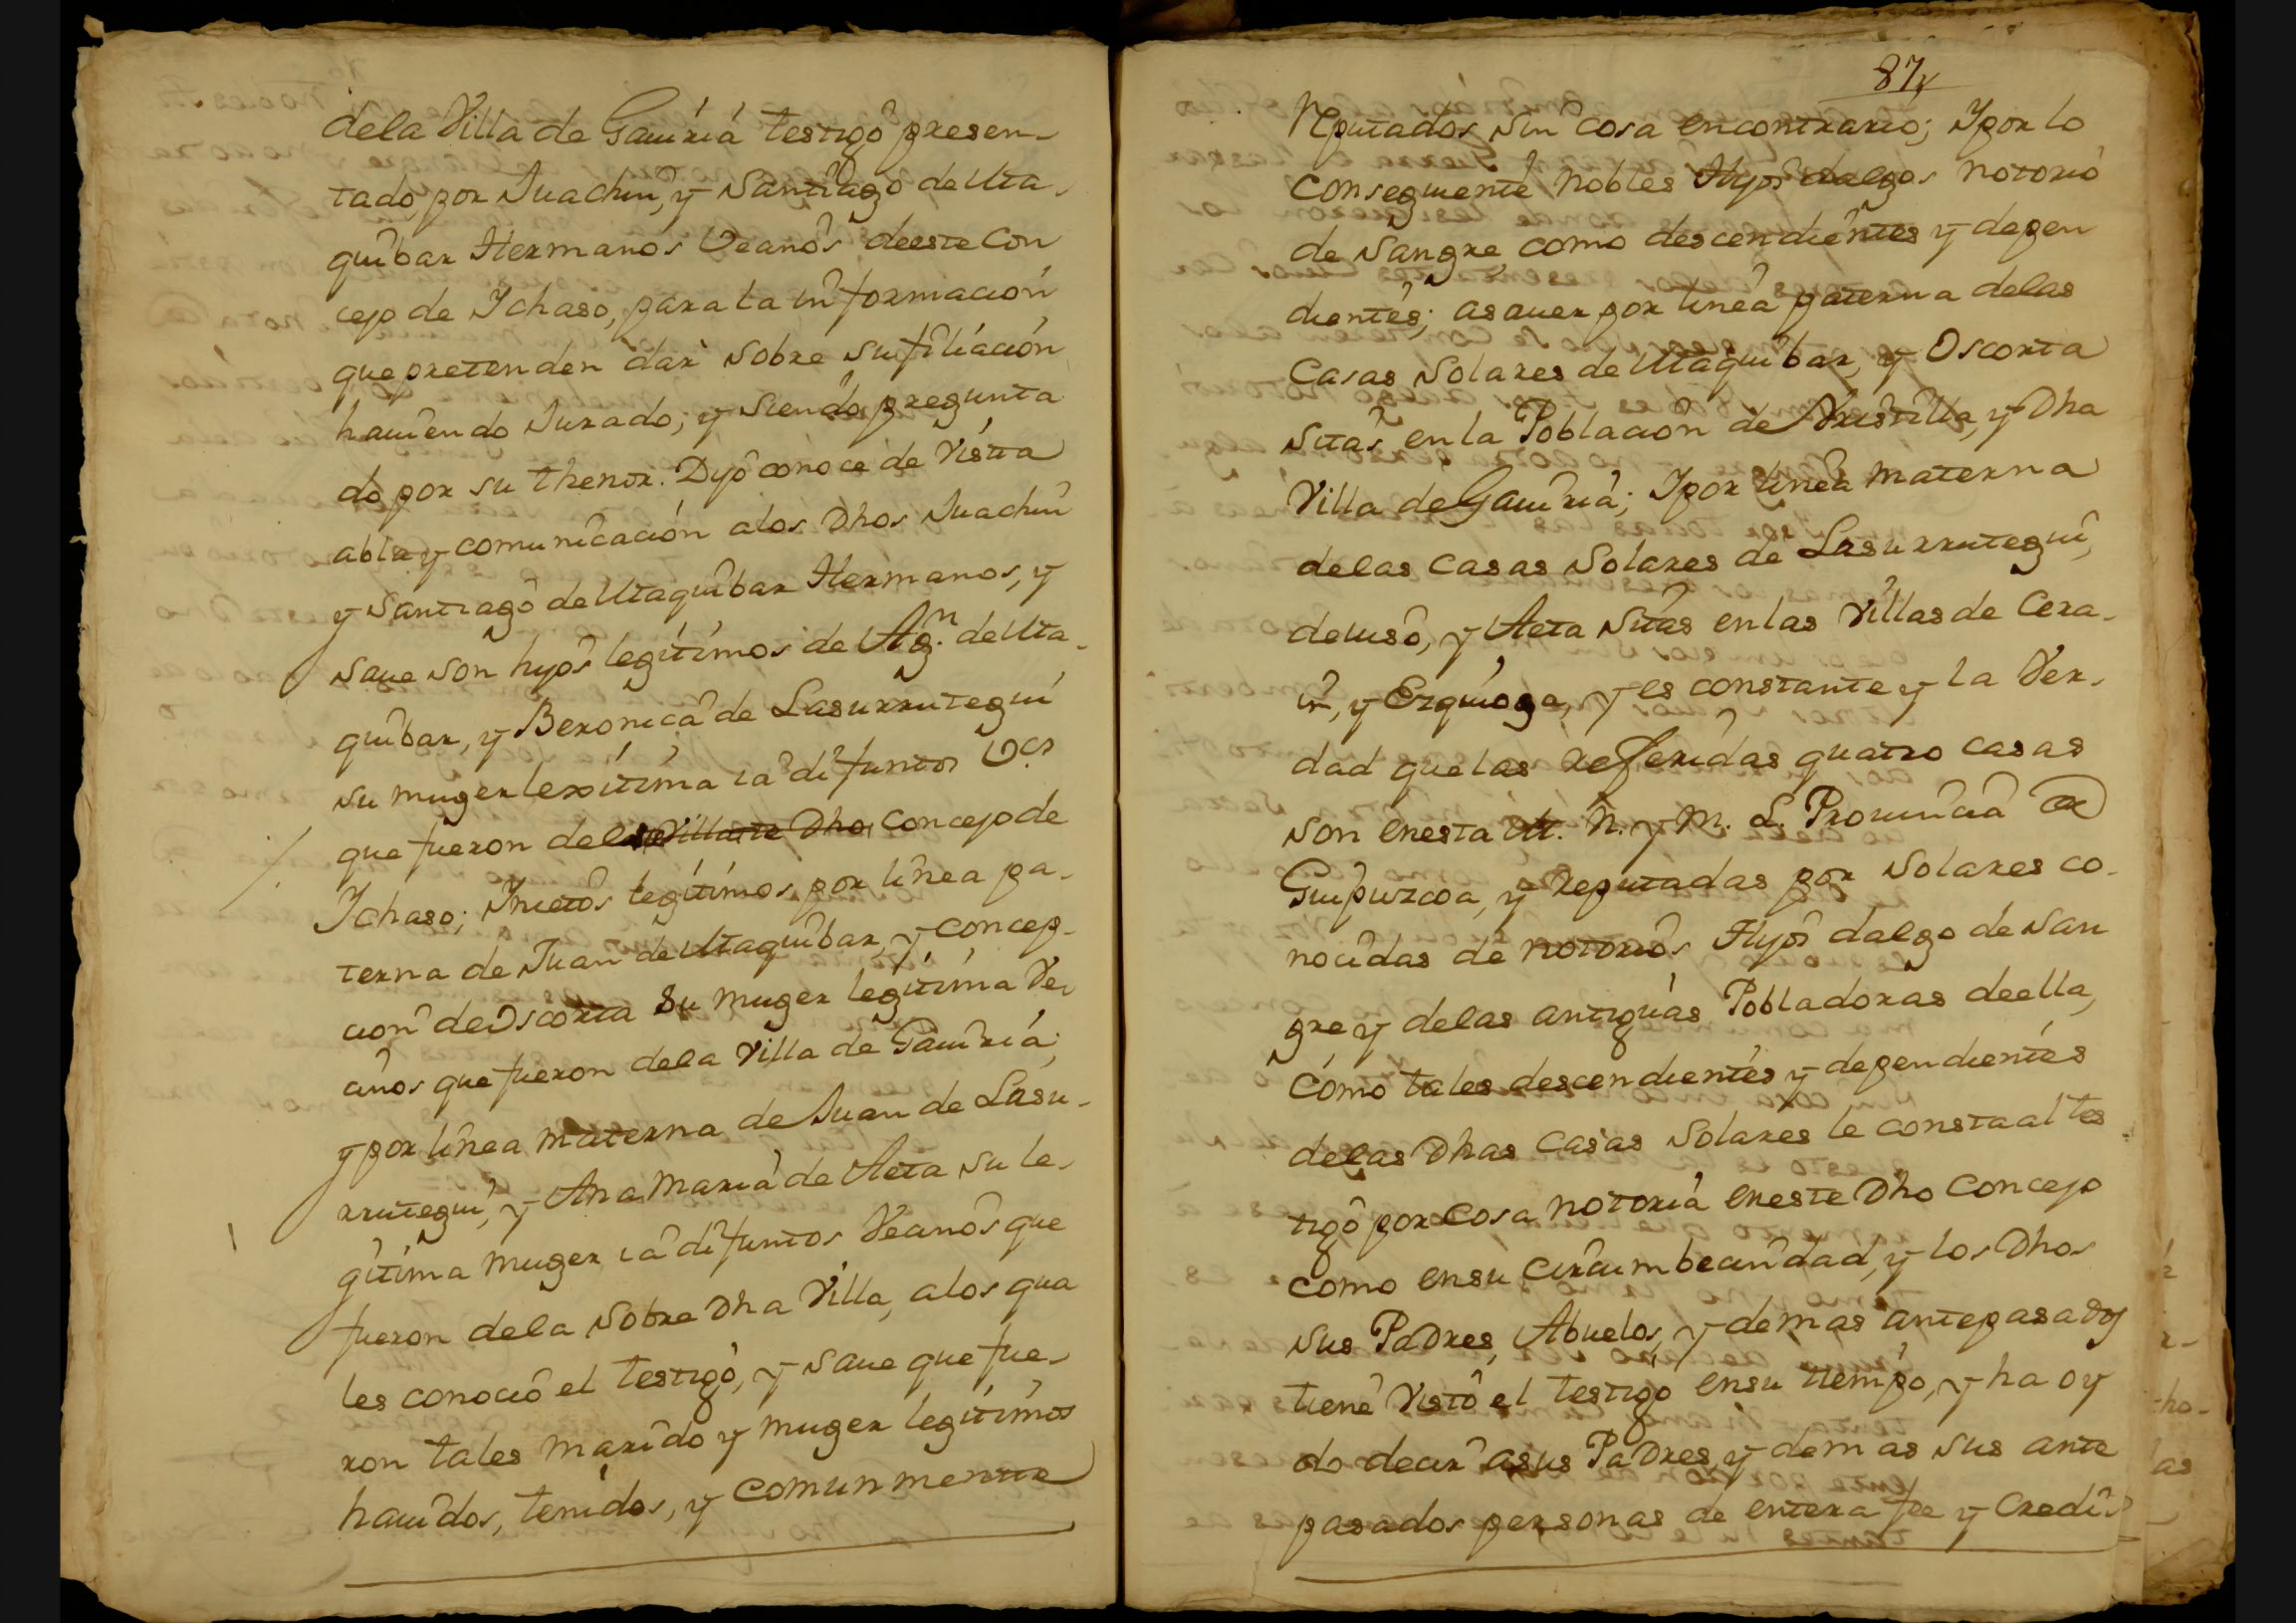 dela Villa de Gauiria testigo presen-
tado por Juachin, y Santiago de Uta-
quibar Hermanos Veanos deeste Con
cejo de Ichaso, para la informacion
que pretenden dar sobre su filiacion
hauiendo Jurado; y siendo pregunta
do por su thenor. Dijo conoce de Vista
abla y comunicacion alos Dhos Juachin
y Santiago de Utaquibar Hermanos, y
saue son hijos legitimos de Agn. de Uta-
quibar, y Beronica de Lasurrutegui
su muger lexitima ia difuntos Vos
que fueron dela Villa de Dho Concejo de
Ichaso; Inietos legitimos por linea pa-
terna de Juan de Utaquibar, y Concep-
cion de Oscorta su muger legitima Ve-
cinos que fueron dela Villa de Gauiria;
y por linea materna de Juan de Lasu-
rrutegui, y Ana Maria de Aeta su le-
gitima muger ia difuntos Veanos que
fueron dela sobre Dha Villa, alos qua
les conocio el testigo, y saue que fue-
ron tales marido y muger legitimos
hauidos, tenidos, y comunmente
87
Reputados sin cosa encontrario; Ipor lo
conseguiente nobles Hijos dalgos notorio
de sangre como descendientes y depen
dientes; asauer por linea paterna delas
Casas Solares de Utaquibar, y Oscorta
sitas en la Poblacion de Aristilla, y Dha
Villa de Gauiria; Ipor linea materna
delas Casas Solares de Lasurrutegui,
deiuso, y Aeta sitas en las Villas de Cera-
in, y Ezquioga, y es constante y la Ver-
dad que las referidas quatro casas
son enesta M. N. y M. L. Prouincia de
Guipuzcoa, y reputadas por Solares co-
nocidas de notorios Hijos dalgo de San
gre y delas antiguas Pobladoras deella,
Como tales descendientes y dependientes
delas Dhas Casas Solares le consta al tes
tigo por cosa notoria eneste Dho Concejo
como ensu circumbecindad, y los Dhos
sus Padres, Abuelos, y demas antepasados
tiene visto el testigo ensu tiempo, y ha oy
do decir asus Padres, y demas sus ante
pasados personas de entera fee y Credi-